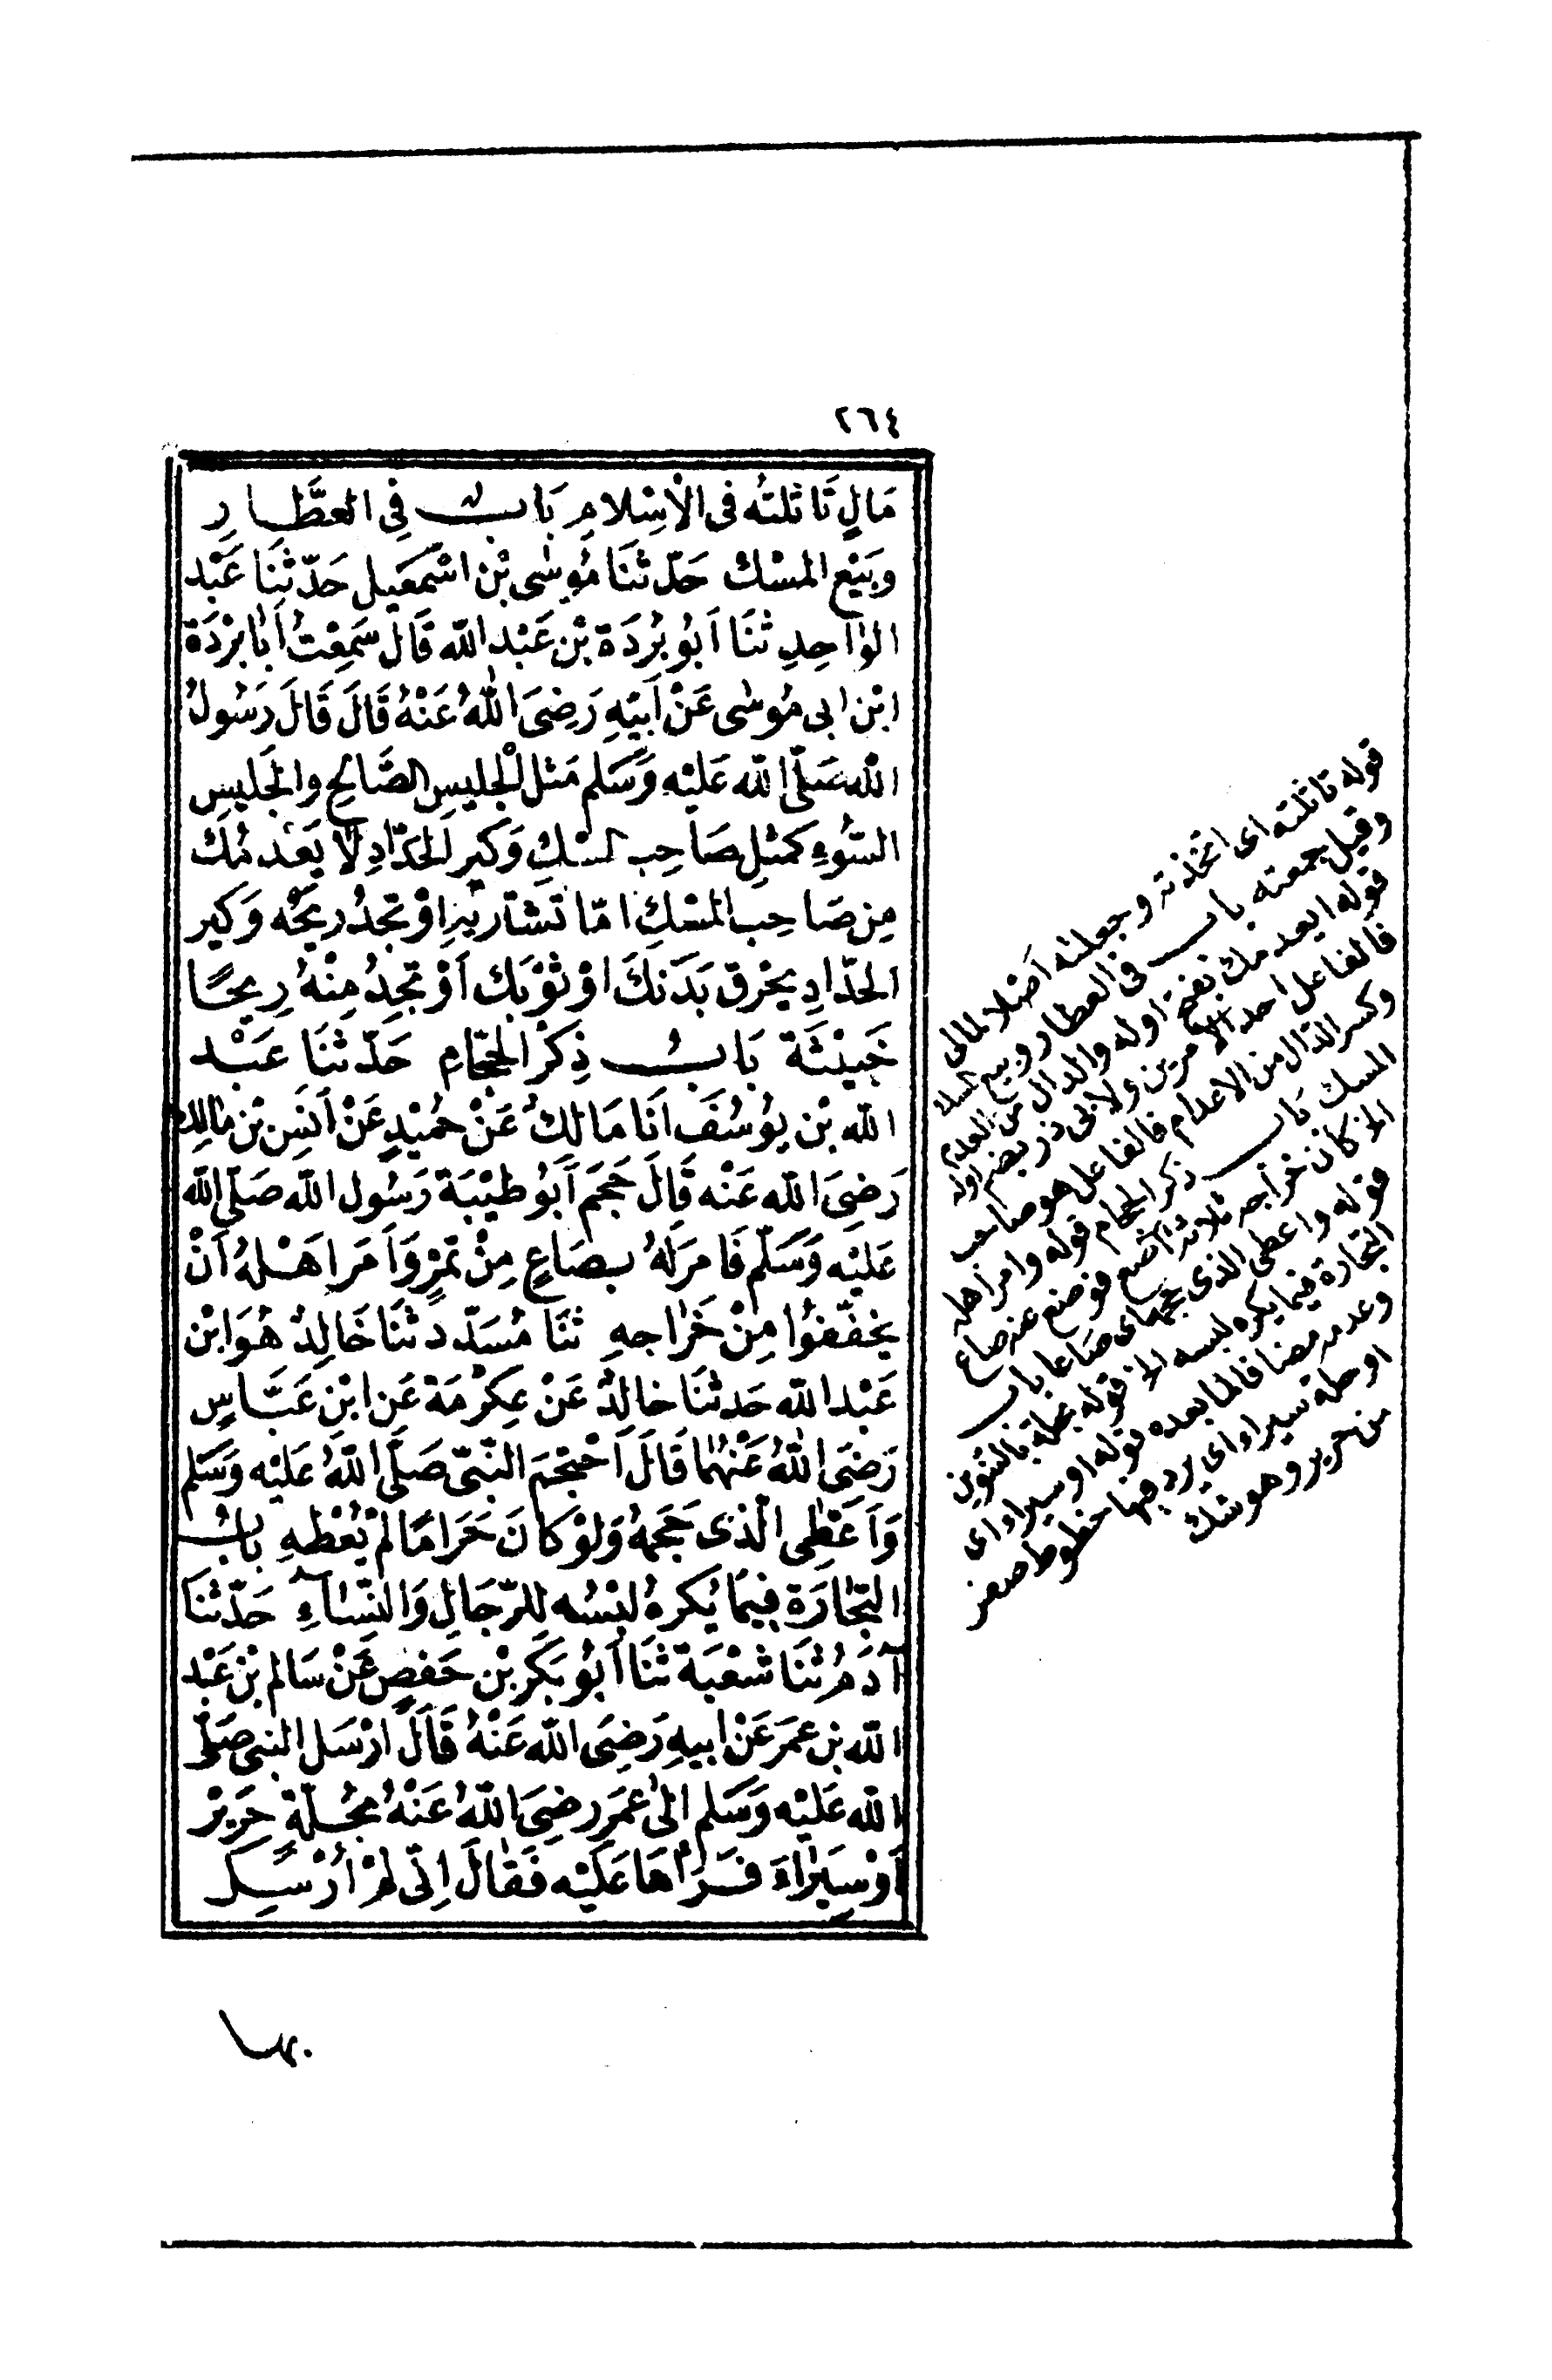 ٢٦٤
مَالٍ تَأَثَّلْتُه فى الْاِسْلَامِ بَابٌ فِى العَطَّارِ
وَبَيْعِ المسْك حَدّثنَا مُوسٰى بْن اسْمٰعِيل حَدّثنَا عَبْد
الوٰاحِدِ ثنَا اَبُو بُرْدَة بْن عَبْد الله قَالَ سَمِعْتُ اَبَا بُرْدَة
ابْن ابى مُوسٰى عَنْ اَبيْهِ رَضِىَ اللّٰهُ عَنْهُ قَالَ قَالَ رَسُولُ
الله صَلّى الله عَلَيْه وَسَلم مَثل الْجليسِ الصَّالحِ والجَليسِ
السُّوءِ كَمثلِ صَاحِبِ المسْكِ وَكير الحَدّادِ لَا يَعْدمُكَ
مِن صَاحِب المسْكِ امّا تشتَريْهِ اوْ تجدُ ريحَه وَكير
الحَدّادِ يحْرق بَدَنكَ اوْ ثوْبَك اَوْ تجِدُ مِنْهُ رِيحًا
خَبيْثَة بَابُ ذِكْر الحجّام حَدّثنَا عَبْد
الله بْن يُوسُفَ انَا مَالِكٌ عَنْ حُمَيْدٍ عَنْ اَنَسِ بْن مَالِك
رَضِىَ الله عَنْه قَالَ حَجَمَ اَبُو طَيْبَة رَسُول الله صَلّى الله
عَليْه وَسَلّم فَامرَ لَهُ بصَاعٍ مِنْ تَمْرٍ وَاَمَر اهْلهُ اَنْ
يخفّفوُا مِنْ خَرَاجهِ ثنَا مُسَدّد ثنَا خَالِدٌ هُوَ ابْن
عَبْد الله حَدثنَا خالِدٌ عَنْ عِكْرمَة عَن ابْن عَبَّاسٍ
رَضِىَ اللّٰهُ عَنْهُمَا قَالَ اَحْتجَمَ النَّبىّ صَلّى اللهُ عَليْه وَسَلم
وَاَعْطٰى الّذى حَجَمهُ وَلوْ كانَ حَرَامًا لَمْ يُعْطهِ بابُ
التِجَارَة فِيمَا يُكرهُ لبْسُه للرّجَالِ وَالنّسَاءِ حَدّثنَا
آدَمُ ثنَا شعْبَة ثنَا اَبُو بَكر بْن حَفصٍ عَنْ سَالم بْن عَبْد
الله بن عمَرَ عَنْ ابيهِ رَضِىَ الله عَنْهُ قَالَ ارْسَل النبى صَلّى
الله عَليْه وَسَلم الىٰ عمَرَ رضِىَ اللّهُ عَنْهُ بحُلّةِ حَرِيْر
اَوْ سِيَراءَ فَرَاٰهَا عَليْه فَقَالَ اِنّى لمْ اُرْسِل
بها
قوله تاثلته اى اتخذته وجعلته اصلا لمالى
وقيل جمعته باب فى العطار وبيع المسك
قوله لا يعدمك بفتح اوله والدال من العدم
فالفاعل احد الامرين ولابى ذر بضم اوله
وكسر الدال من الاعدام فالفاعل هو صاحب
المسك باب ذكر الحجام قوله وامر اهله
الخ كان خراجه ثلاثة اصع فوضع عنه صاع
قوله واعطى الذى حجمه اى صاعا باب
التجارة فيما يكره لبسه الخ قوله بحلة بالتنوين
وعدمه مضافا لما بعده قوله او سيراء اى
او حلة سيراء اى برد فيها خطوط صفر
من حرير وهو شك